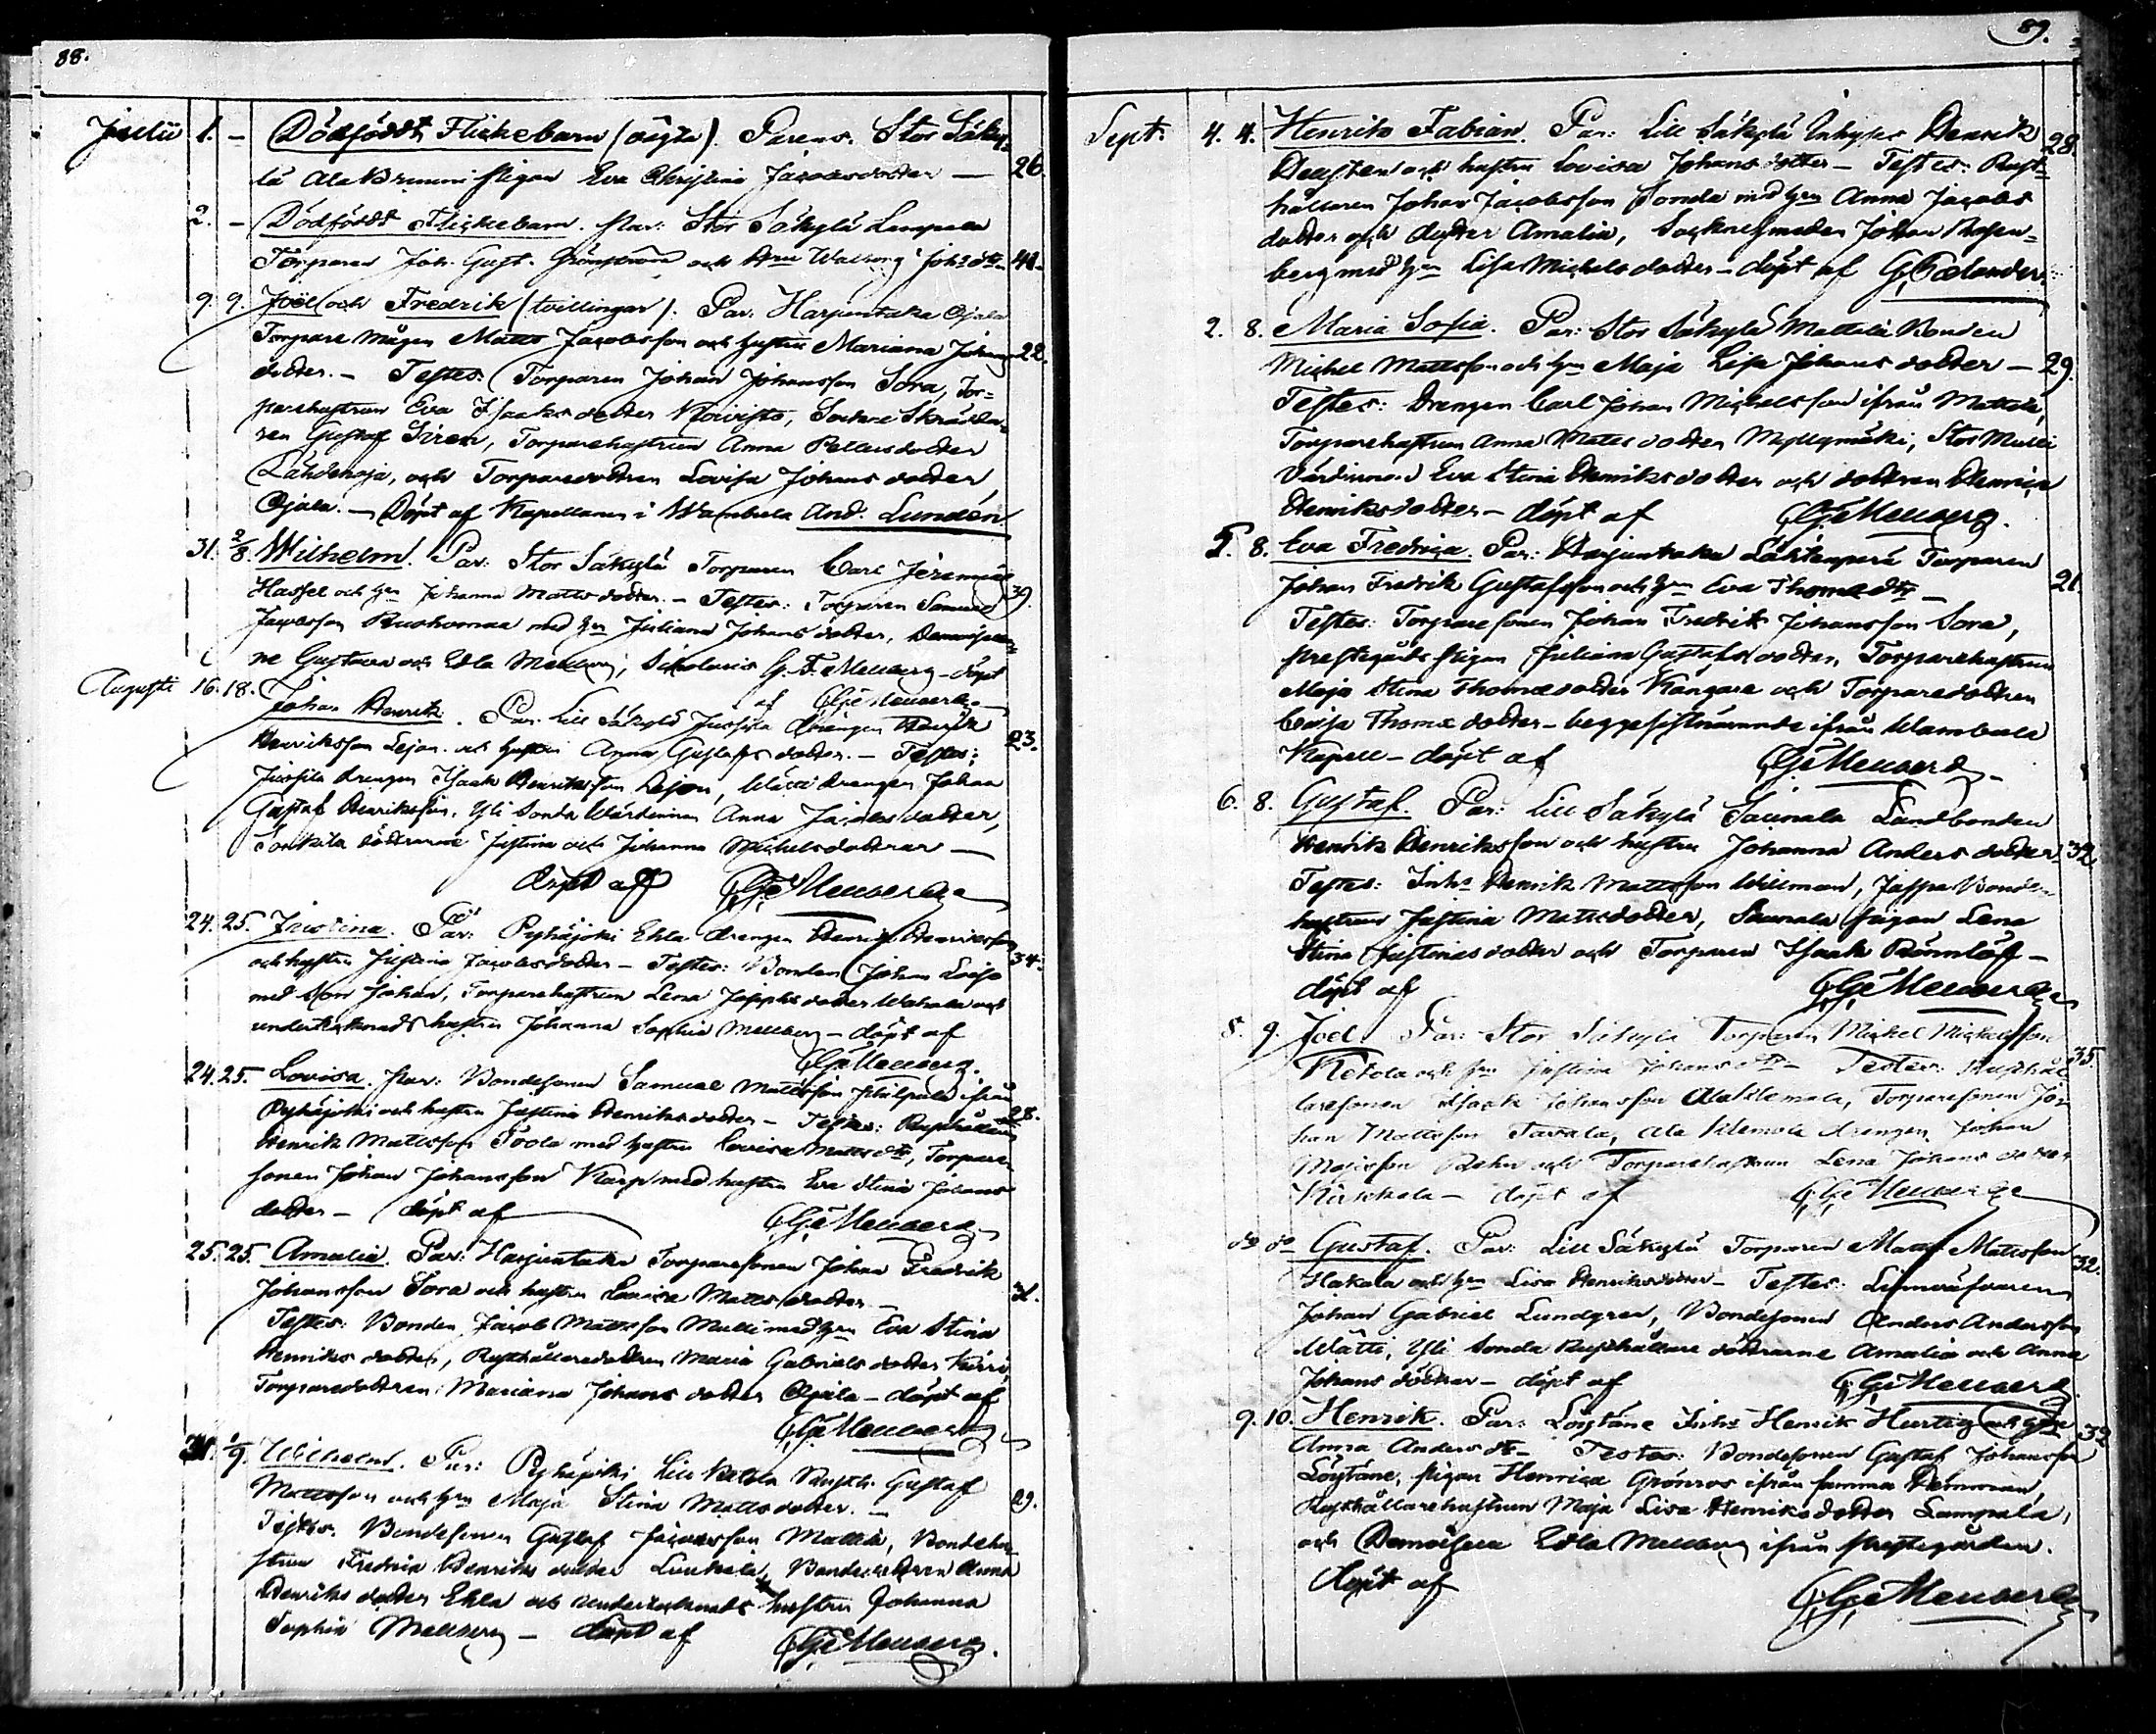 88.
Julii 1. – Dödföddt Flickebarn (oägta). Parens. Stor Säky-
lä Ala Krimmi Pigan Eva Christina Jacobsdotter — 26
2. – Dödföddt Flickebarn. Par: Stor Säkylä Lampala
Torparen Joh. Gust. Grönstrand och Hru Walborg Johsdtr 41.
9. 9. Joel och Fredrik (tvillingar). Par: Harjuntaka Ojala
Torpare mågen Matts Jacobsson och hustru Mariana Johans 22.
dotter. – Testes: Torparen Johan Johansson Sora, Tor-
parehustrun Eva Isaaksdotter Koivisto, Sockne Skrädda-
ren Gustaf Siren, Torparehustrun Anna Pettersdotter
Lähdenoja, och Torparedottren Lovisa Johansdotter
Ojala. – Döpt af Kapellanen i Wambula And. Lundén
31. 2/8. Wilhelm. Par: Stor Säkylä Torparen Carl Jeremias
Hassel och hru Johanna Mattsdotter. – Testes: Torparen Samuel 39.
Jacobsson Ruohomaa med hru Juliana Johansdotter, Demoiseller-
ne Gustava och Edla Mellberg, Scholaris G. F. Mellberg – döpt
af C. Gje Mellberg
Augusti 16. 18. Johan Henrik. Par: Lill Säkylä Jussila Drängen Henrik
Henriksson Lejon och hustru Anna Gustafsdotter. – Testes: 23.
Jussila drengen Isaak Henriksson Lejon, Wätti drengen Johan
Gustaf Henriksson, Yli Sonda Wärdinnan Anna Jacobsdotter,
döttrarne Justina och Johanna Michelsdöttrar —
döpt af C. Gje Mellberg
24. 25. Justina. Par: Pyhäjoki Ekla drengen Henrik Henriksson
och hustru Justina Jacobsdotter – Testes: Bonden Johan 34.
med son Johan, Torparehustrun Lena Josephsdotter och
undertecknads hustru Johanna Sophia Mellberg – döpt af
C. Gje Mellberg.
24. 25. Lovisa. Par: Bondesonen Samuel Mattsson Philpula ifrån
Pyhäjoki och hustru Justina Henriksdotter – Testes: Rusthållaren 28.
Henrik Mattsson Toola med hustru Lovisa Mattsdtr, Torpare-
sonen Johan Johansson Karp med hustru Eva Stina Johans
dotter – döpt af C. Gje Mellberg
25. 25. Amalia. Par: Harjuntaka Torparesonen Johan Fredrik
Johansson Sora och hustru Lovisa Mattsdotter – 31.
Testes: Bonden Jacob Mattsson Mulli med hru Eva Stina
Henriksdotter, Rusthållaredottren Maria Gabrielsdotter Kirri,
Torparedottren Mariana Johansdotter Ojala – döpt af
C. Gje Mellberg
31. 1/9. Wilhelm. Par: Pyhäjoki Lill Ketola Rusth. Gustaf
Mattsson och hru Maja Stina Mattsdotter. – 29.
Testes: Bondesonen Gustaf Jacobsson Mattila, Bondehu-
strun Fredrica Henriksdotter, Bondedottren Anna
Henriksdotter Ekla och undertecknads hustru Johanna
Sophia Mellberg – döpt af C. Gje Mellberg.
89.
Sept. 4. 4. Henrik Fabian. Par: Lill Säkylä Inhyses Henrik 28.
och hustru Lovisa Johansdotter – Testes: Rust-
hållaren Johan Jacobsson Sonda med hru Anna Jacobs
dotter och dotter Amalia, Sockneskomaker Johan Rosen-
berg med hru Lisa Michelsdotter – döpt af G. Cælander.
2. 8. Maria Sofia. Par: Stor Säkylä Mattila Bonden
Michel Mattsson och hru Maja Lisa Johansdotter — 29.
Testes: Drengen Carl Johan Michelsson ifrån Mattila,
Torparehustrun Anna Mattsdotter Myllymäki, Stor Mulli
Värdinnan Eva Stina Henriksdotter och dottren Henrica
Henriksdotter – döpt af C. Gje Mellberg.
5. 8. Eva Fredrica. Par: Harjuntaka Lähtenperä Torparen
Johan Fredrik Gustafsson och hru Eva Thomædtr – 21.
Testes: Torparesonen Johan Fredrik Johansson Sora,
Prestegårds Pigan Juliana Gustafsdotter, Torparehustrun
Maja Stina Thomædotter Kangare och Torparedottren
Lovisa Thomædotter – begge sistnämnde ifrån Wambula
Kapell – döpt af C. Gje Mellberg
6. 8. Gustaf. Par: Lill Säkylä Saunala Landbonden
Henrik Henriksson och hustru Johanna Andersdotter 32.
Testes: Inhs Henrik Mattsson Willman, Bonde-
hustrun Justina Mattsdotter, Saunala pigan Lena
Stina Justinasdotter och Torparen Isaak Rönnlöf –
döpt af C. Gje Mellberg
8. 9. Joel. Par: Stor Säkylä Torparen Mickel Mickelsson
Ketola och hru Justina Johansdtr – Testes: Rusthål- 35.
laresonen Isaak Johansson Ala Klemola, Torparesonen Jo-
han Mattsson Tavala, Ala Klemola drengen Johan
Mattsson Rehn och Torparehustrun Lena Johansdotter
Kirkkola – döpt af C. Gje Mellberg
do do Gustaf. Par: Lill Säkylä Torparen Matts Mattsson
Hakala och hru Lisa Henriksdotter – Testes: Linneväfvaren 32.
Johan Gabriel Lundgren, Bondesonen Anders Andersson
Wätti, Yli Sonda Rusthållare döttrarne Amalia och Anna
Johans döttrar – döpt af C. Gje Mellberg
9. 10. Henrik. Par: Löytäne Inhs Henrik Hurtig och hru
Anna Andersdtr – Testes: Bondesonen Gustaf Johansson 32
Löytäne, Pigan Henrica Grönros ifrån samma Hemman,
Rusthållarehustrun Maja Lisa Henriksdotter Lampala,
och Demoisell Edla Mellberg ifrån Prestegården.
döpt af C. Gje Mellberg